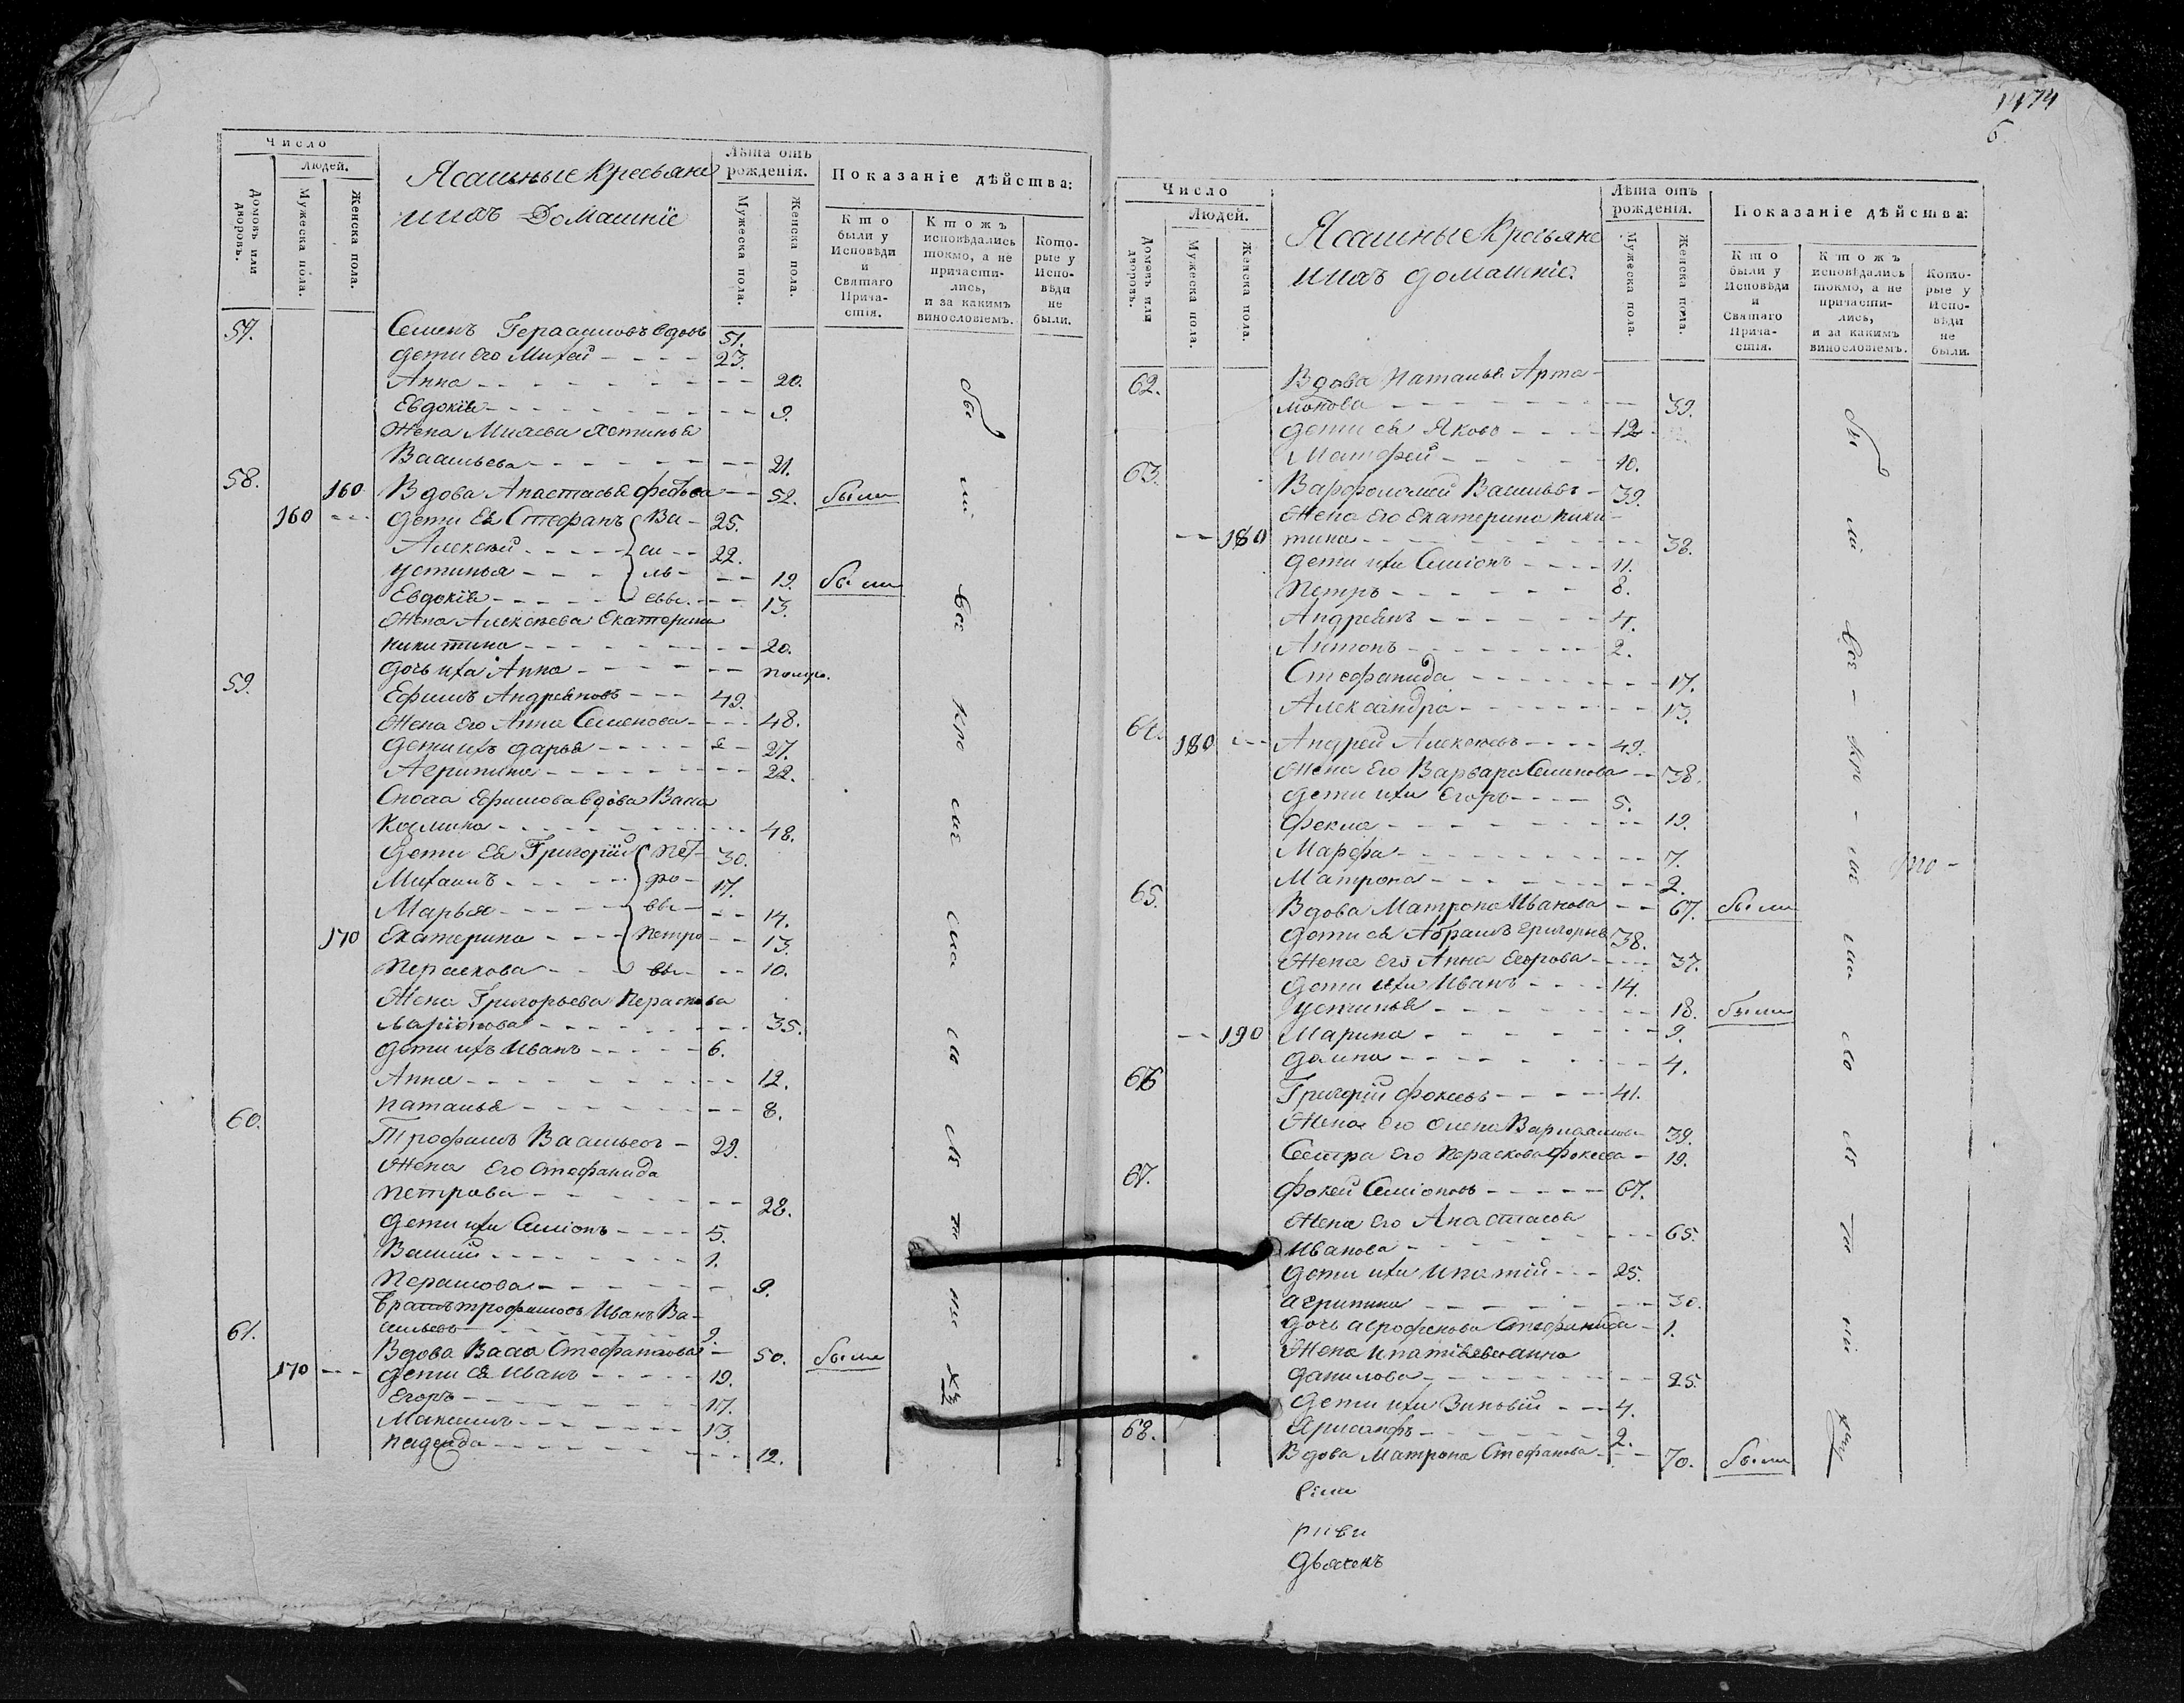 Число
Людей.
Домовъ или дворовъ.
Мужеска пола.
Женска пола.
Ясашные кресьяне
и ихъ Домашніе
Лѣта отъ рожденія.
Мужеска пола.
Женска пола.
Показаніе дѣйства:
Кто были у Исповѣди и Святаго Прича-стія.
Ктожъ исповѣдались токмо, а не причасти-лись, и за какимъ винословіемъ.
Кото-рые у Испо-вѣди не были.
57. Семенъ Герасимовъ вдовъ 51.
дети его Михей 23.
Анна 20.
Евдокія 9.
Жена Михеева Устинья
Васильева 21.
58. 160 Вдова Анастасья 52. были
160 дети ея Стефанъ Ва- 25.
Алексей си 22.
Устинья ль- 19. были
Евдокія евы. 13.
Жена Алексеева Екатерина
Никитина 20.
дочь ихъ Анна
59. Ефимъ Андреяновъ 49.
Жена его Анна Семенова 48.
дети ихъ Дарья 27.
Агрипина 22.
Сноха Ефимова вдова Васса
Космина 48.
Дети ея Григорій Пет- 30.
Михаилъ ро- 17.
Марья вы- 14.
170 Екатерина Петро 13.
Пераскова вы 10.
Жена Григорьева Пераскова
Ларіонова 35.
дети ихъ Иванъ 6.
Анна 12.
Наталья 8.
60. Трофимъ Васильевъ 29.
Жена его Стефанида
Петрова 28.
дети ихъ Симіонъ 5.
Василій 1.
Пераскова 9.
братъ трофимовъ Иванъ Ва-
сильевъ 9.
61. Вдова Васса Стефанова 50. были
170 дети ея Иванъ 19.
Егоръ 17.
Максимъ 13.
Надежда 12.
бы
ли
все
кро
ме
ма
ло
ле
т
ни
хъ
1474
6
Число
Людей.
Домовъ или дворовъ.
Мужеска пола.
Женска пола.
Ясашные Кресьяне
и ихъ домашніе.
Лѣта отъ рожденія.
Мужеска пола.
Женска пола.
Показаніе дѣйства:
Кто были у Исповѣди и Святаго Прича-стія.
Ктожъ исповѣдались токмо, а не причасти-лись, и за какимъ винословіемъ.
Кото-рые у Испо-вѣди не были.
62. Вдова Наталья Арта-
монова 39.
дети ея Яковъ 12
Матфей 10.
63. Варфоломей Васильевъ 39.
Жена его Екатерина Ники-
180 тина 38.
дети ихъ Симіонъ 11.
Петръ 8.
Андреянъ 4.
Антонъ 2.
Стефанида 17.
Александра 13.
64. 180 Андрей Алексеевъ 49.
Жена его Варвара Семенова 38.
дети ихъ Егоръ 5.
Фекла 19.
Марфа 7.
Матрона 2.
65. Вдова Матрона Иванова 67. были
дети ея Абрамъ Григорьев 38.
Жена его Анна Егорова 37.
дети ихъ Иванъ 14.
Устинья 18. были
190 Марина 9.
Домна 4.
66 Григорій Фокеевъ 41.
Жена его Олена Варламова 39.
Сестра его Пераскова Фокеева 19.
67. Фокей Симіоновъ 67.
Жена его Анастасья
Иванова 65.
дети ихъ Ипатій 25.
Агрипина 30.
дочь агрофенова Стефанида 1.
Жена Ипатіева анна
Данилова 25.
дети ихъ Зиновій 4.
2.
68. Вдова Матрона Стефанова 70. были
бы
ли
все
кро
ме
ма
ло
ле
т
ни
хъ
дьяконъ